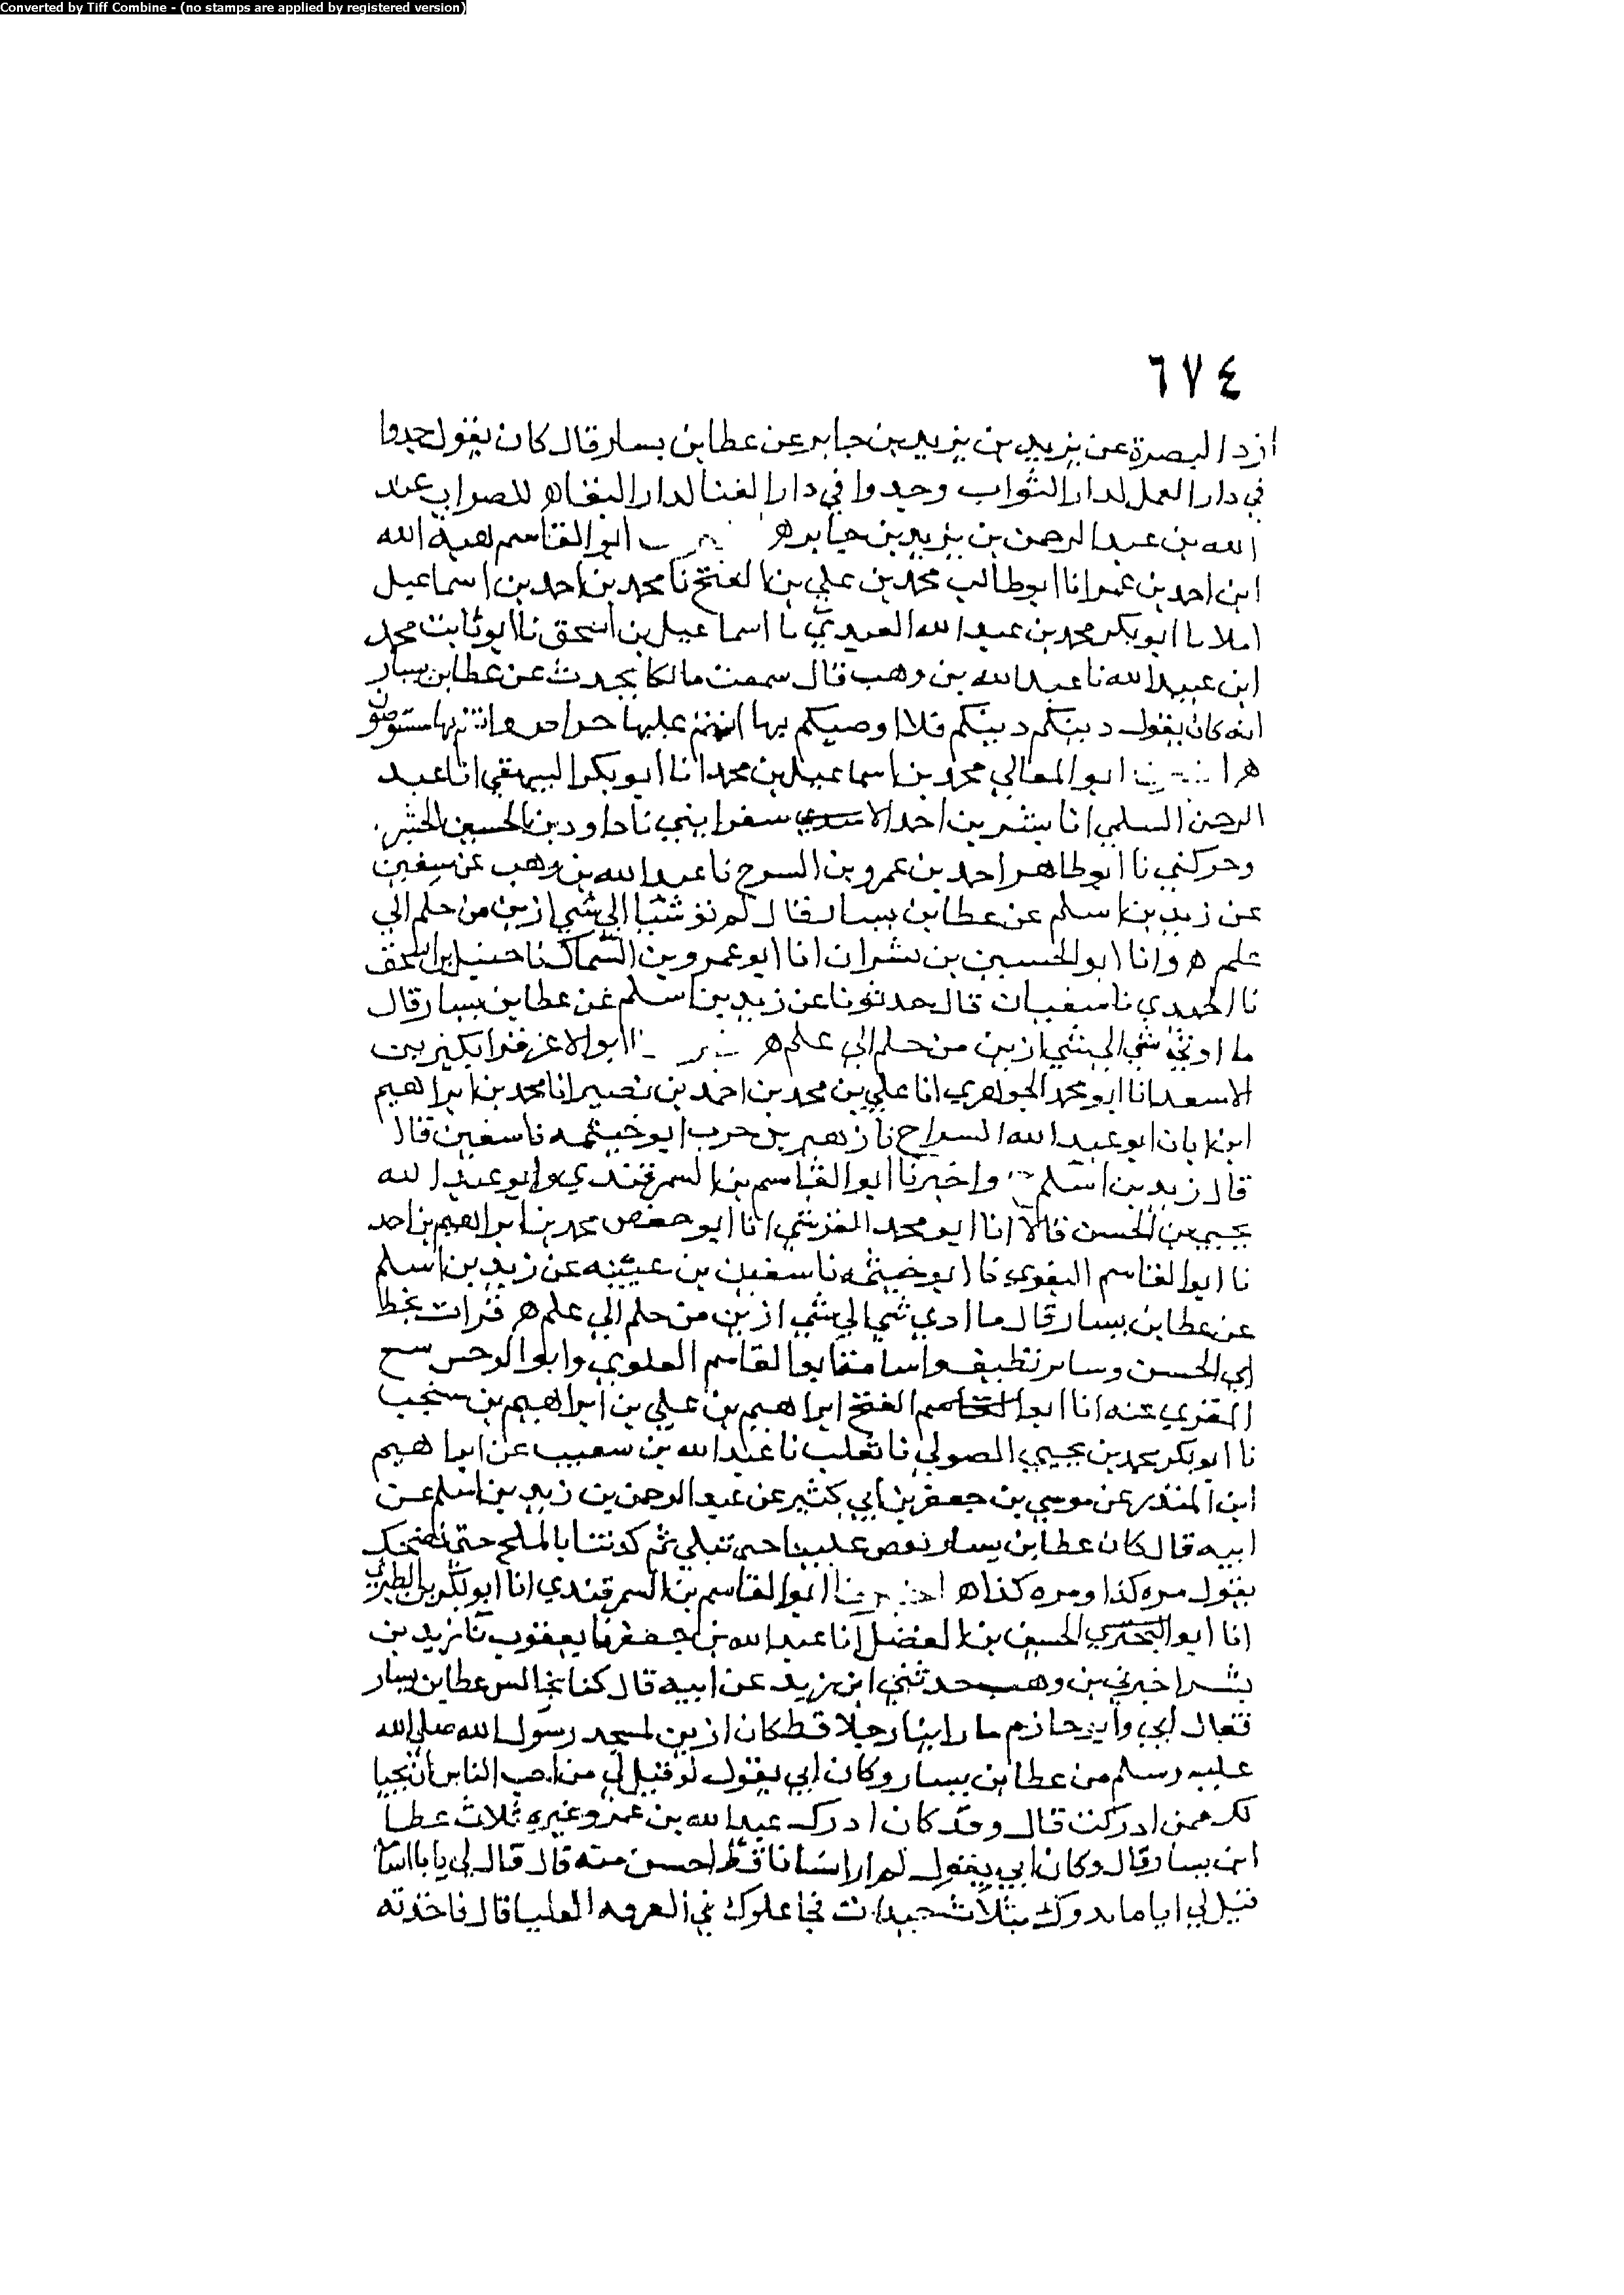 Converted by Tiff Combine - (no stamps are applied by registered version)
٦٧٤
ازد البصرة عن يزيد بن يزيد بن جابر عن عطا بن يسار قال كان يقول جدوا
في دار العمل لدار الثواب وجدوا في دار الفنا لدار البقا ه الصواب عبد
الله بن عبد الرحمن بن يزيد بن جابر ه ابو القاسم هبة الله
ابن احمد بن عمر انا ابو طالب محمد بن علي بن الفتح نا محمد بن احمد بن اسماعيل
املا نا ابو بكر محمد بن عبد الله العبدي نا اسماعيل بن اسحق نا ابو ثابت محمد
ابن عبيد الله نا عبد الله بن وهب قال سمعت مالكا يحدث عن عطا بن يسار
انه كان يقول دينكم دينكم فلا اوصيكم بها انتم عليها حراص وانتم بها مستوصون
ه ابو المعالي محمد بن اسماعيل بن محمد انا ابو بكر البيهقي انا عبد
الرحمن السلمي انا بشر بن احمد الاسفرايني نا داود بن الحسين
نا ابو طاهر احمد بن عمرو بن السرح نا عبد الله بن وهب عن سفين
عن زيد بن اسلم عن عطا بن يسار قال لم نؤ شيا الي شي ازين من حلم الي
علم ه وانا ابو الحسين بن بشران انا ابو عمرو بن السماك نا حنبل بن اسحق
نا الحميدي نا سفيان قال حدثونا عن زيد بن اسلم عن عطا بن يسار قال
ما شي الي شي ازين من حلم الي علم ه ابو الاعز قراتكين بن
الاسعد انا ابو محمد الجوهري انا علي بن محمد بن احمد بن نصير انا محمد بن ابراهيم
ابن ابان ابو عبد الله السراج نا زهير بن حرب ابو خيثمه نا سفين قال
قال زيد بن اسلم واخبرنا ابو القاسم بن السمرقندي وابو عبد الله
يحيي بن الحسن قالا انا ابو محمد انا ابو حفص محمد بن ابراهيم بن احمد
نا ابو القاسم البغوي نا ابو خيثمه نا سفين بن عيينه عن زيد بن اسلم
عن عطا بن يسار قال ما ادي شي الي شي ازين من حلم الي علم ه قرات بخط
ابي الحسن ابو القاسم العلوي وابو الوحش سبيع
المقري عنه انا ابو الفتح ابراهيم بن علي بن ابراهيم بن سيخت
نا ابو بكر محمد بن يحيي الصولي نا ثعلب نا عبد الله بن شبيب عن ابراهيم
ابن المنذر عن موسي بن جعفر بن ابي كثير عن عبد الرحمن بن زيد بن اسلم عن
ابيه قال كان عطا بن يسار يقص علينا حتي نبكي ثم يحدثنا بالملح حتي نضحك
يقول مره كذا ومره كذا ه اخبرنا ابو القاسم بن السمرقندي انا ابو بكر بن الطبري
انا ابو الحسين بن الفضل انا عبد الله بن جعفر نا يعقوب نا زيد بن
بشر اخبرني بن وهب حدثني ابن زيد عن ابيه قال كنا نجالس عطا بن يسار
فقال ابي وابو حازم ما راينا رجلا قط كان ازين لمسجد رسول الله صلي الله
عليه وسلم من عطا بن يسار وكان ابي يقول لو قيل لي من احب الناس ان يحيا
لك ممن ادركت قال وقد كان ادرك عبد الله بن عمر وغيره قلت عطا
ابن يسار قال وكان ابي يقول لم ار انسانا قط احسن منه قال قال لي يا با اسا
قيل لي بثلاث فجا في العليا قال فاخذته